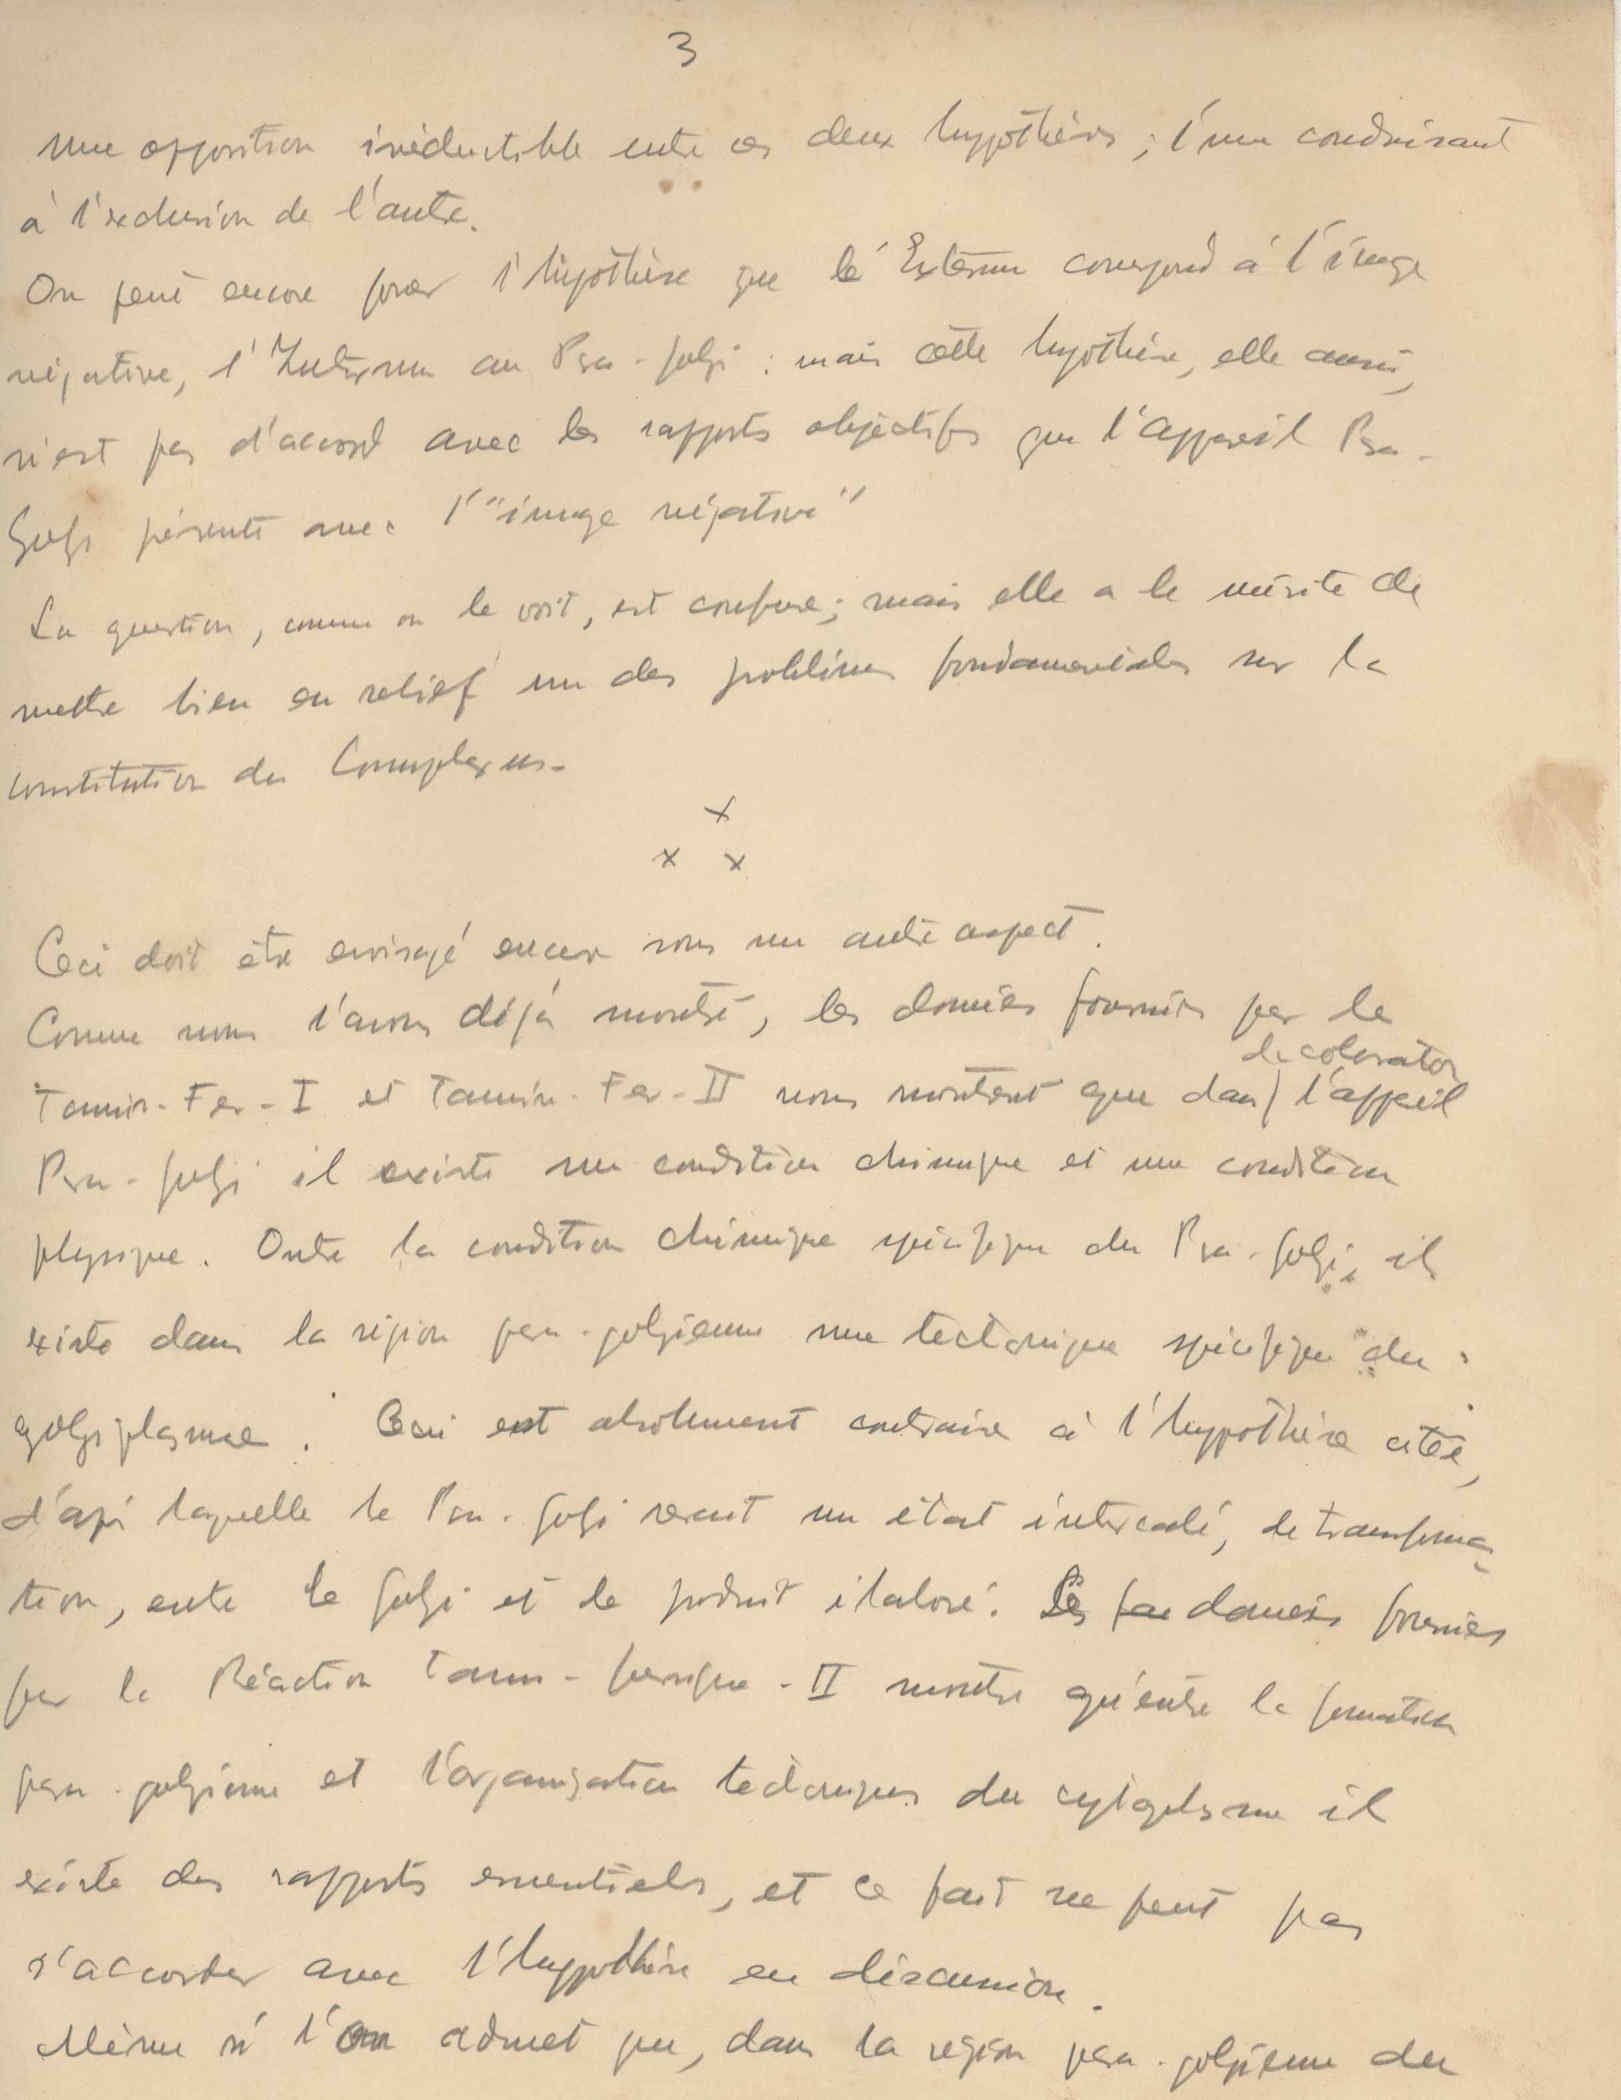 3
une opposition irréductible entre ces deux hypothèses ; l'une conduisant
à l'exclusion de l'autre.
On peut encore poser l'hypothèse que le Externum correspond à l'image
négative, l'Internum au Pra-golgi : mais cette hypothèse, elle aussi,
n'est pas d'accord avec les rapports objectifs que l'appareil Pra-
Golgi présente avec l'"image négative"
La question, comme on le voit, est confuse ; mais elle a le mérite de
mettre bien en relief un des problèmes fondamentales sur la
constitution du Complexus.
x
x x
Ceci doit être envisagé encore sous un autre aspect.
Comme nous l'avons déjà montré, les données fournies par le
decolorator
Tannin-Fer-I et Tannin-Fer-II nous montrent que dans l'appareil
Pra-golgi il existe une condition chimique et une condition
physique. Outre la condition chimique spécifique du Pra-golgi, il
existe dans la région para-golgienne une tectonique spécifique du
golgiplasme. Ceci est absolument contraire à l'hypothèse citée,
d'après laquelle le Pra-golgi serait un état intercalé, de transforma-
tion, entre le golgi et le produit élaboré. Les données fournies
par la Réaction Tanno-ferrique-II montre qu'entre la formation
para-golgienne et l'organisation tectonique du cytoplasme il
existe des rapports essentiels, et ce fait ne peut pas
s'accorder avec l'hypothèse en discussion.
Même si l'on admet que, dans la région para-golgienne du